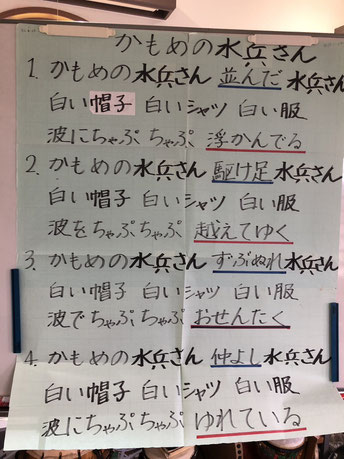 かもめの水兵さん
1. かもめの水兵さん 並んだ 水兵さん
白い帽子 白いシャツ 白い服
波にちゃぷ ちゃぷ 浮かんでる
2. かもめの水兵さん 駆け足 水兵さん
白い帽子 白いシャツ 白い服
波をちゃぷちゃぷ 越えてゆく
3. かもめの水兵さん ずぶぬれ 水兵さん
白い帽子 白いシャツ 白い服
波でちゃぷちゃぷ おせんたく
4. かもめの水兵さん 仲よし 水兵さん
白い帽子 白いシャツ 白い服
波にちゃぷ ちゃぷ ゆれている